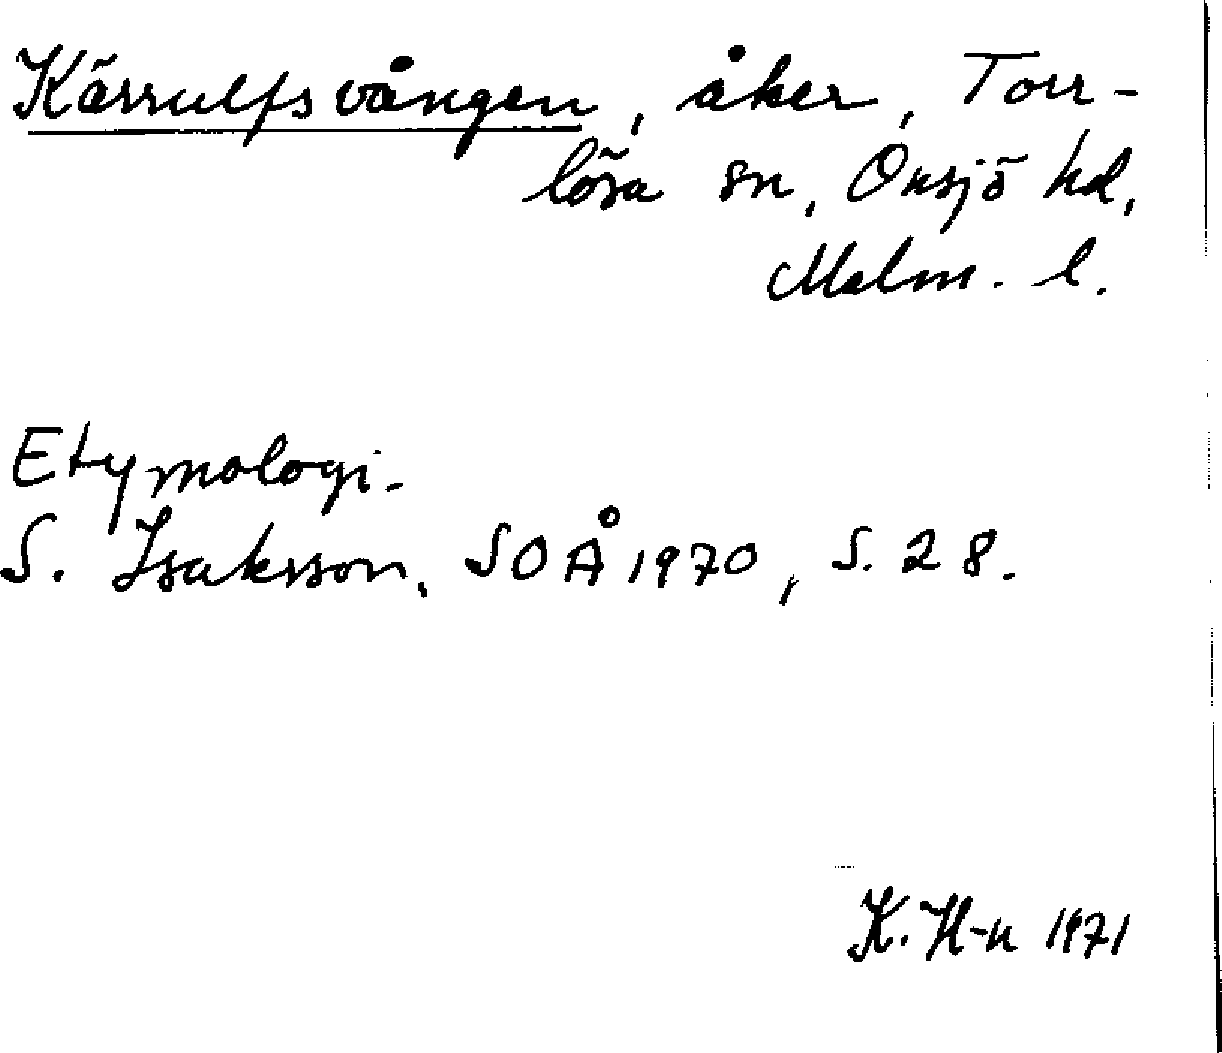 Kärrulfsvången, åker, Torr-
lösa sn, Onsjö hd,
Malm. l.
Etymologi.
S. Isaksson, SOÅ 1970, S. 28.
K. H-n 1971